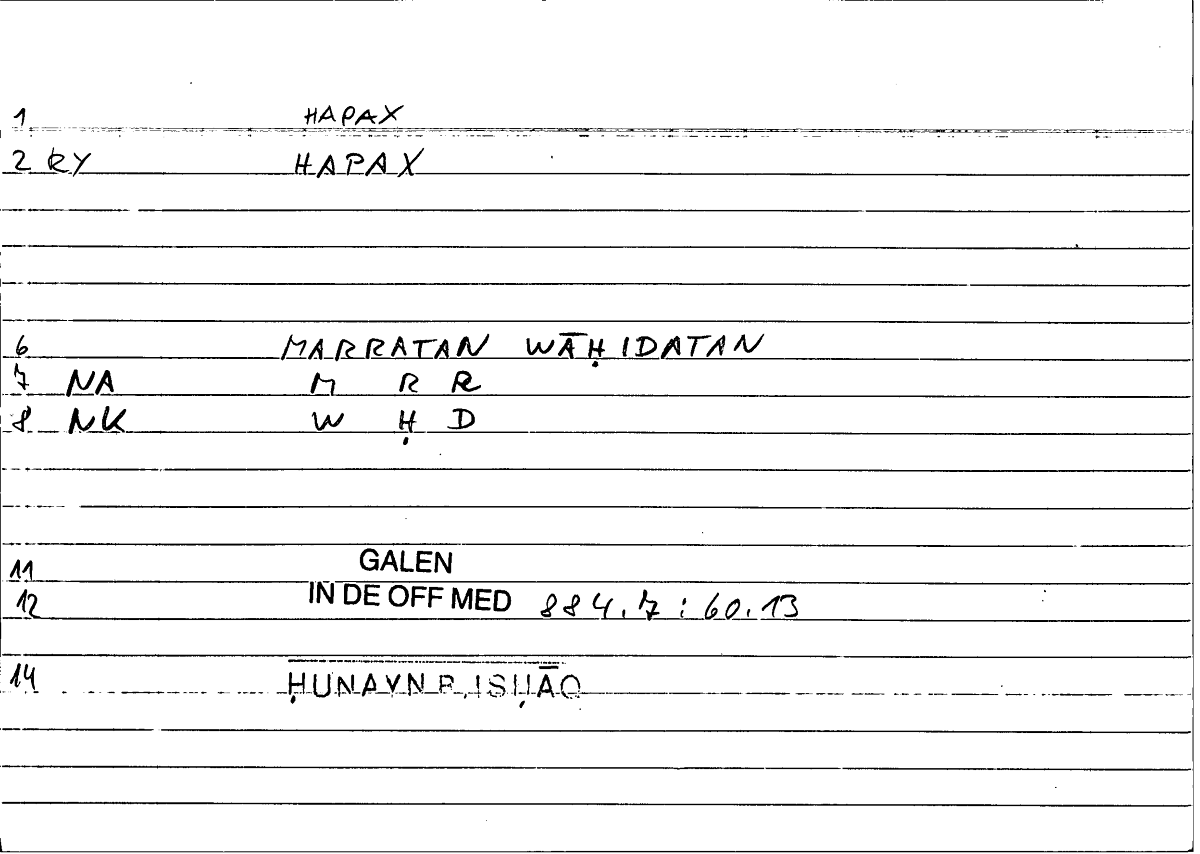 1 HAPAX
2 RY HAPAX
6 MARRATAN WĀḤIDATAN
7 NA M R R
8 NK W Ḥ D
11 GALEN
12 IN DE OFF MED 884.7 : 60.13
14 ḤUNAYN B. ISḤĀQ